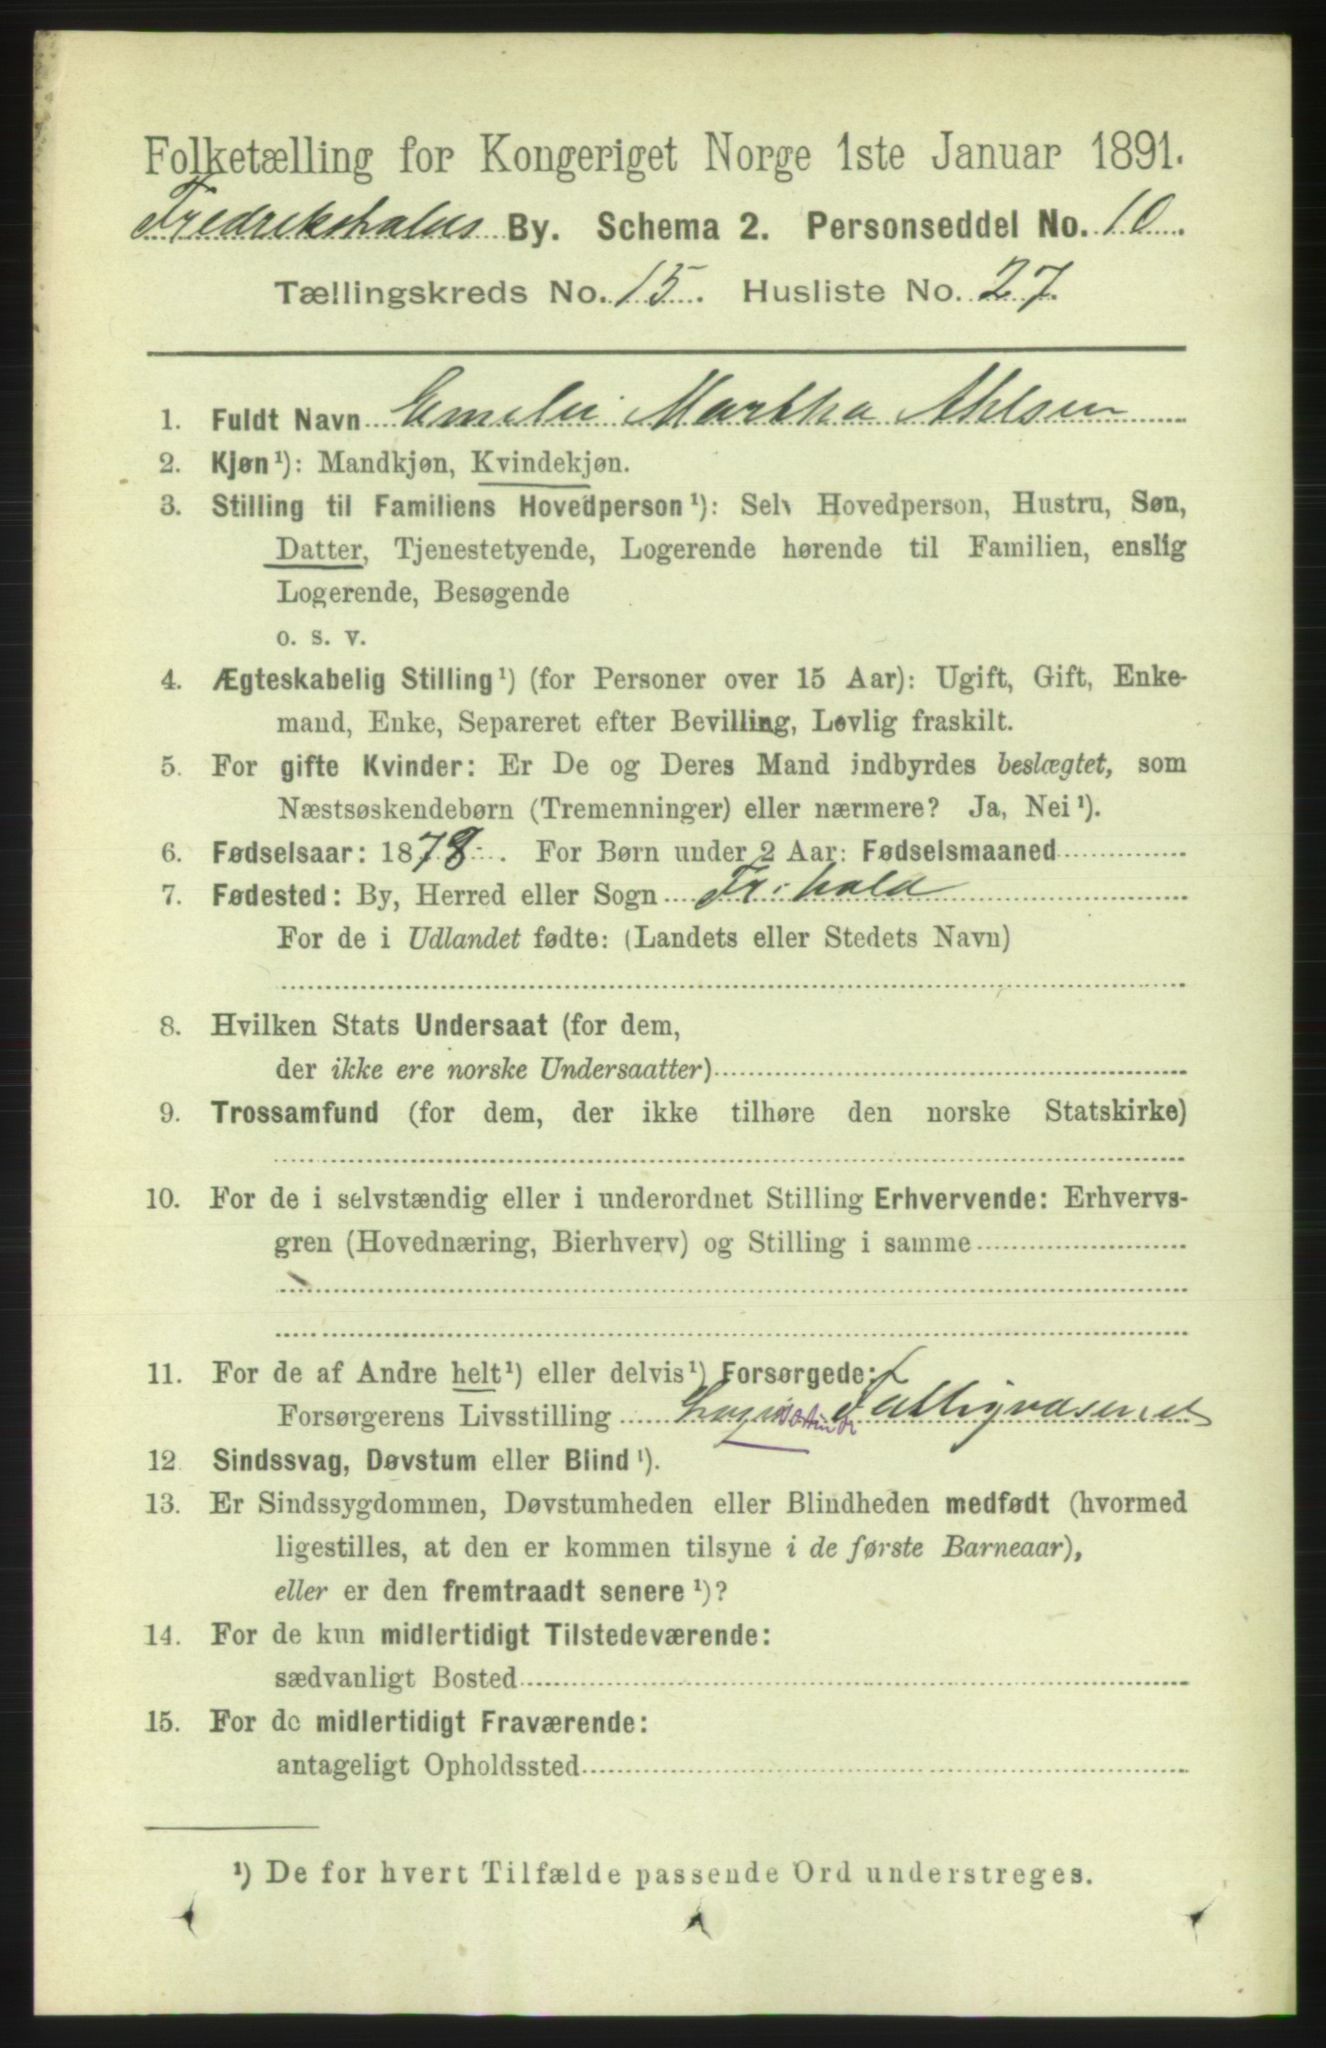 Folketælling for Kongeriget Norge 1ste Januar 1891.
Fredrikshalds By. Schema 2. Personseddel No. 10
Tællingskreds No. 15. Husliste No. 27.
1. Fuldt Navn Emelie Martha Ahlsen
2. Kjøn¹): Mandkjøn, Kvindekjøn.
3. Stilling til Familiens Hovedperson¹): Selv Hovedperson, Hustru, Søn,
Datter, Tjenestetyende, Logerende hørende til Familien, enslig
Logerende, Besøgende
o. s. v.
4. Ægteskabelig Stilling¹) (for Personer over 15 Aar): Ugift, Gift, Enke-
mand, Enke, Separeret efter Bevilling, Lovlig fraskilt.
5. For gifte Kvinder: Er De og Deres Mand indbyrdes beslægtet, som
Næstsøskendebørn (Tremenninger) eller nærmere? Ja, Nei¹).
6. Fødselsaar: 1878. For Børn under 2 Aar: Fødselsmaaned
7. Fødested: By, Herred eller Sogn Fr:hald
For de i Udlandet fødte: (Landets eller Stedets Navn)
8. Hvilken Stats Undersaat (for dem,
der ikke ere norske Undersaatter)
9. Trossamfund (for dem, der ikke tilhøre den norske Statskirke)
10. For de i selvstændig eller i underordnet Stilling Erhvervende: Erhvervs-
gren (Hovednæring, Bierhverv) og Stilling i samme
11. For de af Andre helt¹) eller delvis¹) Forsørgede:
Forsørgerens Livsstilling Fattigvæsenet
12 Sindssvag, Døvstum eller Blind¹).
13. Er Sindssygdommen, Døvstumheden eller Blindheden medfødt (hvormed
ligestilles, at den er kommen tilsyne i de første Barneaar),
eller er den fremtraadt senere¹)?
14. For de kun midlertidigt Tilstedeværende:
sædvanligt Bosted
15. For de midlertidigt Fraværende:
antageligt Opholdssted
¹) De for hvert Tilfælde passende Ord understreges.